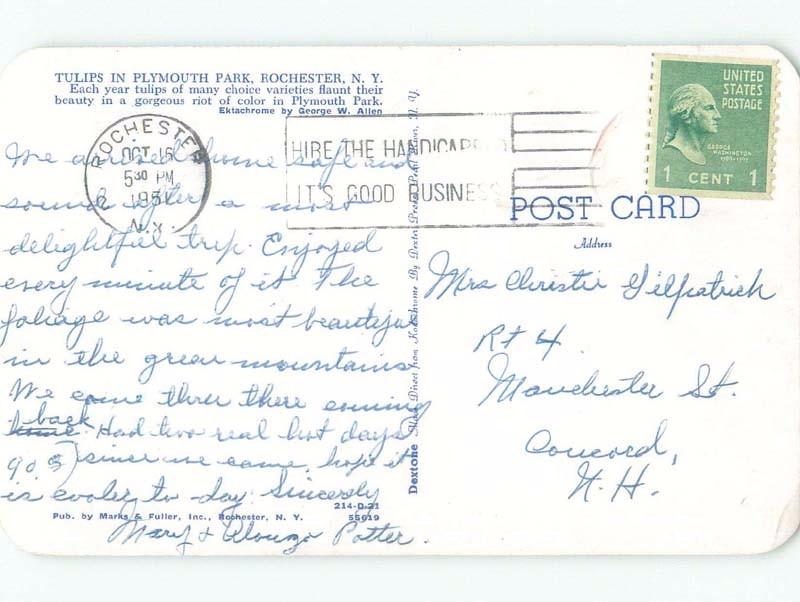 TULIPS IN PLYMOUTH PARK, ROCHESTER, N. Y.
Each year tulips of many choice varieties flaunt their
beauty in a gorgeous riot of color in Plymouth Park.
Ektachrome by George W. Allen
ROCHESTER
2
OCT 16
5 30 PM
1951
N.Y.
HIRE THE HANDICAPPED
IT'S GOOD BUSINESS
UNITED
STATES
POSTAGE
GEORGE
WASHINGTON
1789-1797
1 CENT 1
We arrived home safe and
sound after a most
delightful trip. Enjoyed
every minute of it. The
foliage was most beautiful
in the green mountains
We came three there coming
back
home. Had two real hot days
90.5) since we came, hope it
is cooler to-day. Sincerely
Mary & Alonzo Potter.
214-D-21
Pub. by Marks & Fuller, Inc., Rochester, N. Y. 55619
Dextone Made Direct from Kodachrome By Dexter Press, Pearl River, N. Y.
POST CARD
Address
Mrs Christie Gilpatrick
Rt 4
Manchester St.
Concord,
N. H.